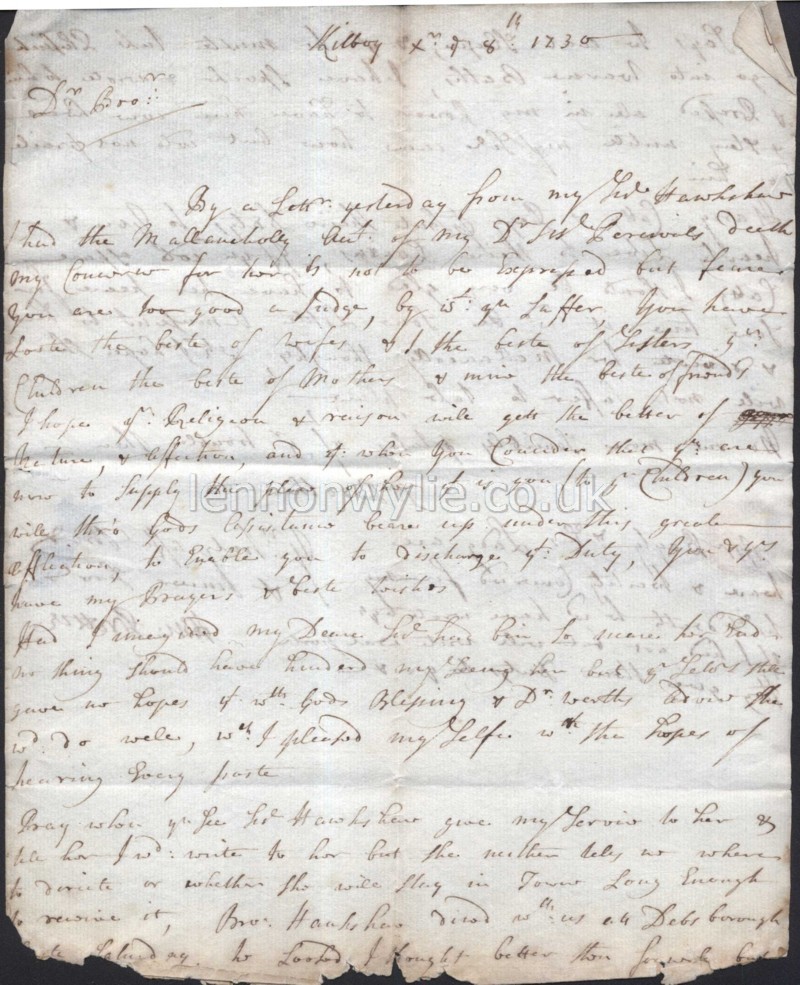 Kilboy Xr ye 8th 1730
Dr Bror:
By a Lettr: yesterday from my Sisr Hawkshaw
I had the Mallancholly Act: of my Dr Sisr Percivals death
my Concerne for her is not to be Expressed but
you are too good a Judge, by wt: yu Suffer, You have
Loste the beste of wifes & I the beste of Sisters yr:
Children the beste of Mothers & mine the beste of friends
I hope yr: Religion & reason will gett the better of
Nature, & affection, and yt: when You Consider that yu are
now to Supply the place of her yt is (to yr Children) you
will thro Gods assistance beare up under this greate
affliction, to Enable you to discharge yr: Duty, You & yrs
have my Prayers & beste wishes
Had I imagined my Deare Sisr had bin so neare her End
no thing should have hindred my Seeing her but yr Lettrs
gave us hopes yt wth: Gods Blessing & Dr: worths advice She
wd: do well, wch I pleased my Selfe wth the hopes of
hearing Every poste
Pray when yu See Sisr Hawkshaw give my Service to her &
tell her I wd: write to her but She neither tells me where
to diricte or whether She will Stay in Town Long Enough
to receive it, Bror: Hawkshaw dined wth: us att Debsborough
Saturday he Looked I thought better then but
lennonwylie.co.uk